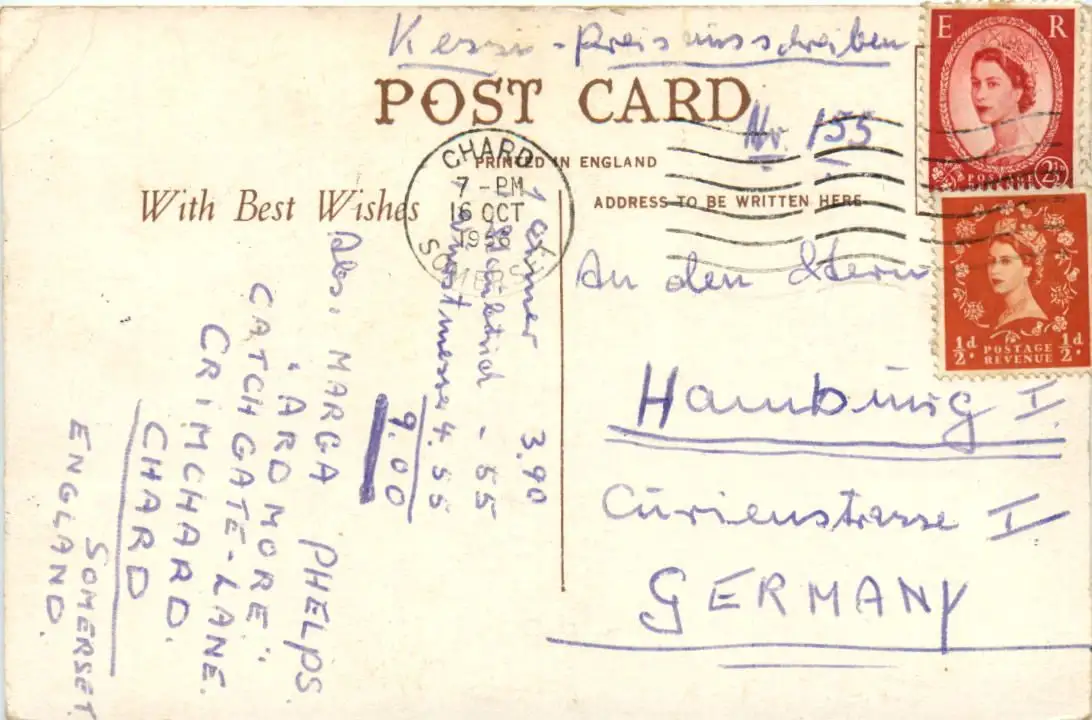 - Preisausschreiben
POST CARD
Nr. 155
PRINTED IN ENGLAND
With Best Wishes
ADDRESS TO BE WRITTEN HERE
CHARD
7 - PM
16 OCT
1956
SOMERSET
E R
POSTAGE
2½d
½d ½d
POSTAGE
REVENUE
An den Stern
Hamburg I.
Curienstrasse I
GERMANY
1 Eimer 3.90
- 55
4.55
9.00
Abs: MARGA PHELPS.
"ARDMORE".
CATCHGATE-LANE.
CRIMCHARD.
CHARD
SOMERSET
ENGLAND.